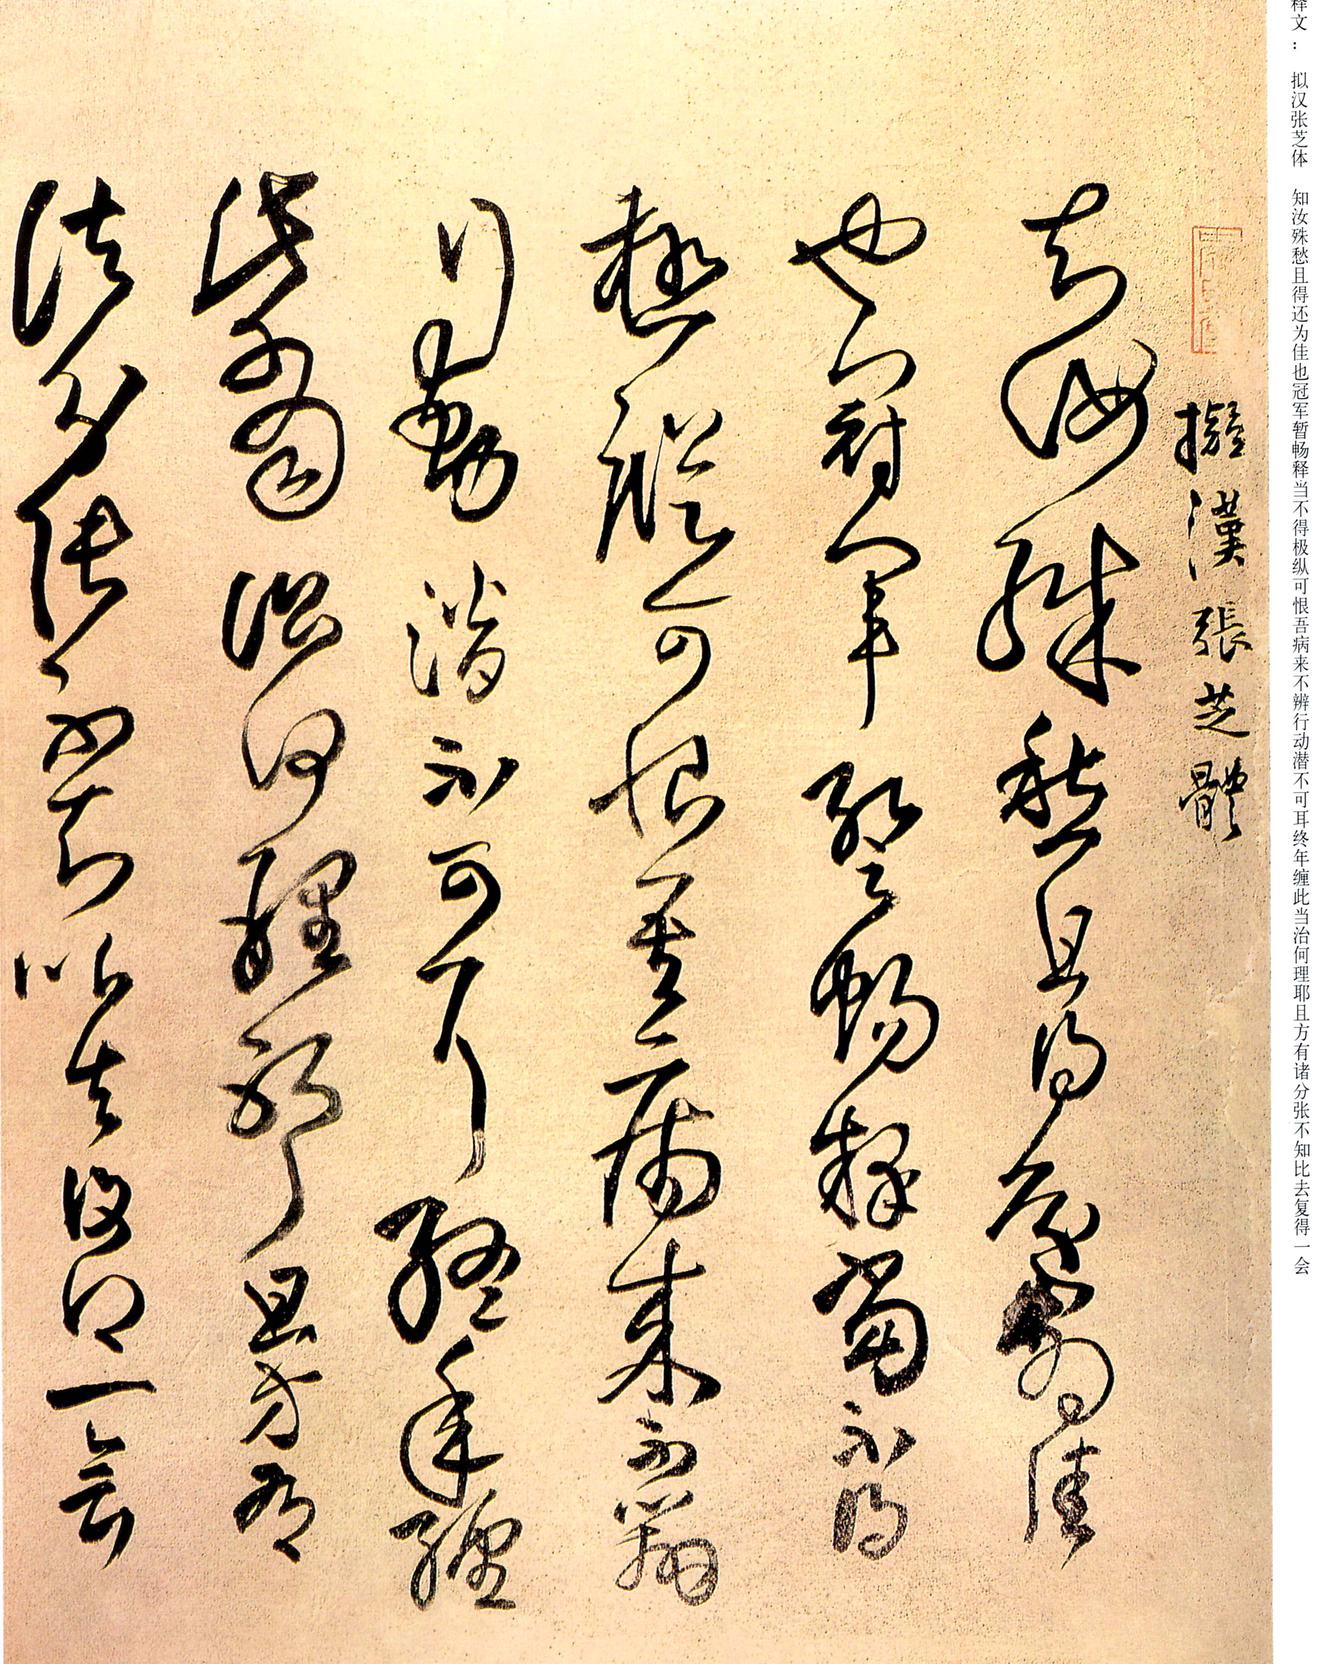 释文： 拟汉张芝体 知汝殊愁且得还为佳也冠军暂畅释当不得极纵可恨吾病来不辨行动潜不可耳终年缠此当治何理耶且方有诸分张不知比去复得一会
擬漢張芝體
知汝殊愁且得還為佳
也冠軍暫暢釋當不得
極縱可恨吾病來不辨
行動潛不可耳終年纏
此當治何理耶且方有
諸分張不知比去復得一會